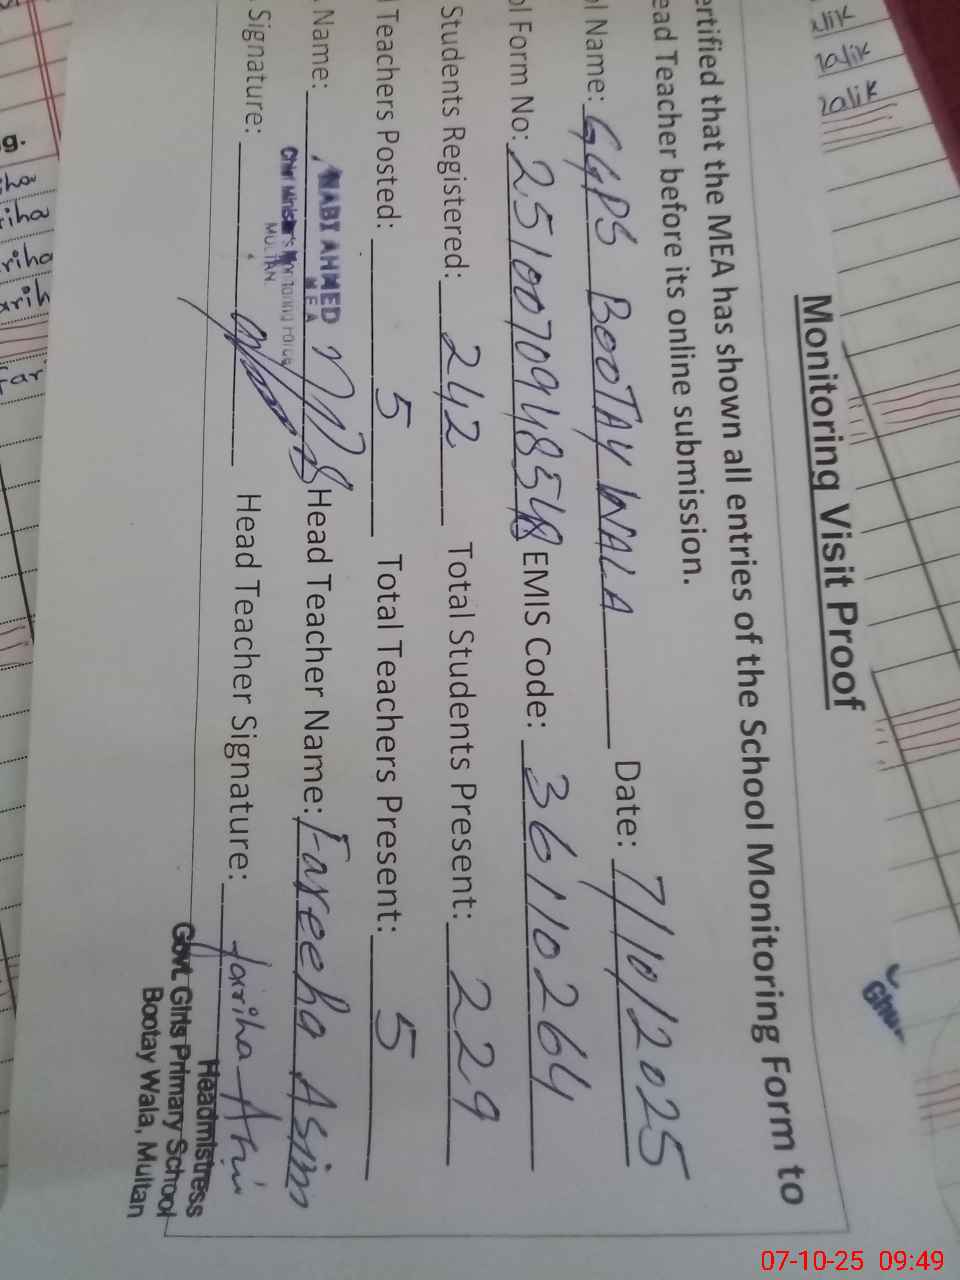 Monitoring Visit Proof
ertified that the MEA has shown all entries of the School Monitoring Form to
ead Teacher before its online submission.
ol Name: GGPS BOOTAY WALA Date: 7/10/2025
ol Form No: EMIS Code: 36110264
Students Registered: 242 Total Students Present: 229
l Teachers Posted: 5 Total Teachers Present: 5
Name: NABI AHMED Head Teacher Name: Fareeha Asim
MEA
MULTAN
Signature: Head Teacher Signature: Fariha Asim
Headmistress
Govt. Girls Primary School
Bootay Wala, Multan
07-10-25 09:49